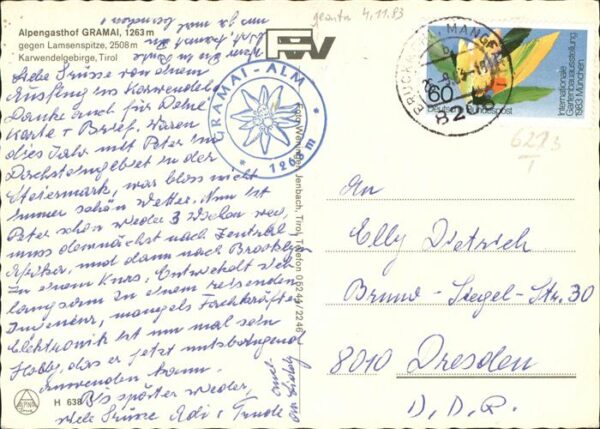 Alpengasthof GRAMAI, 1263 m
gegen Lamsenspitze, 2508 m
Karwendelgebirge, Tirol
Liebe Grüsse von einem
Ausflug ins Karwendel
Danke auch für Deine
Karte + Brief. Waren
dies Jahr mit Peter im
Dachsteingebiet in der
Steiermark, war bloss nicht
immer schön Wetter. Nun ist
Peter schon wieder 3 Wochen weg,
muss demnächst nach Zentral
Afrika, und dann nach Brooklyn
zu einem Kurs. Entwickelt sich
langsam zu einem reisenden
Ingenieur, mangels Fachkräften
Elektronik ist nun mal sein
Hobby, das er jetzt nutzbringend
anwenden kann.
Bis später wieder,
viele Grüsse Adi + Trude
GRAMAI-ALM
* 1263 m *
H 638
Jenbach, Tirol, Telefon 05244/2246
geantw 4.11.83
60
Deutsche Bundespost
Internationale
Gartenbauausstellung
1983 München
8206
An
Elly Dietrich
Bruno-Siegel-Str. 30
8010 Dresden
D.D.R.